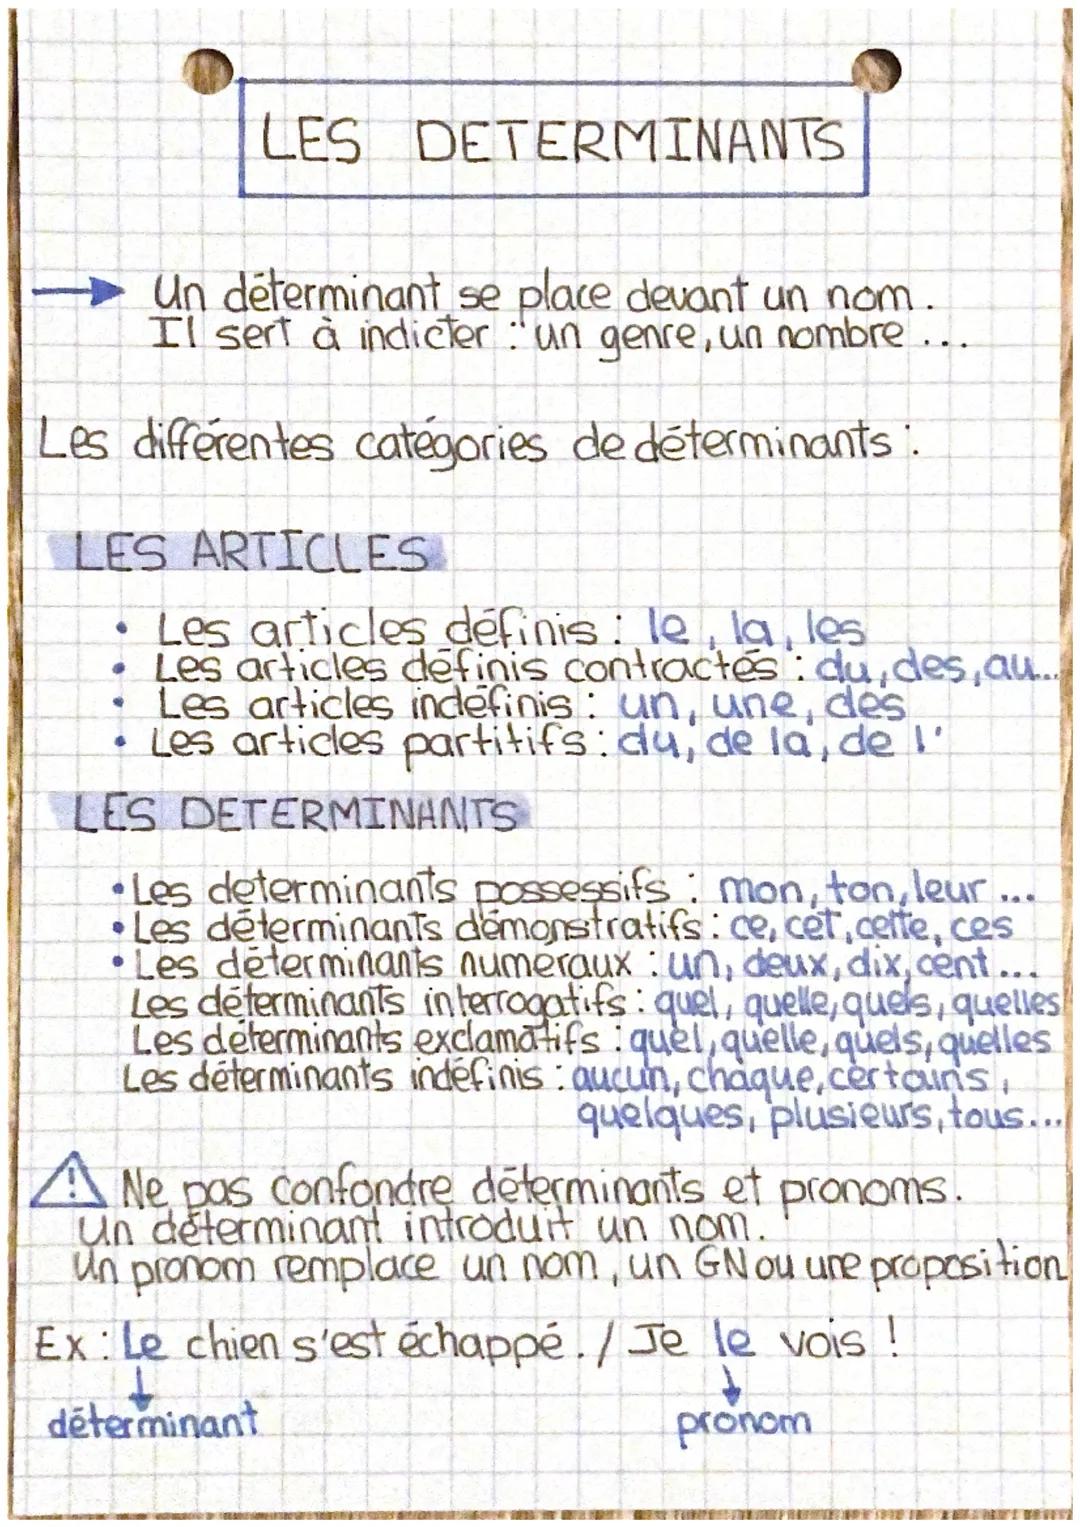 LES DETERMINANTS
Un déterminant se place devant un nom.
Il sert à indicter : un genre, un nombre ...
Les différentes catégories de déterminants :
LES ARTICLES
• Les articles définis : le, la, les
• Les articles définis contractés : du, des, au...
• Les articles indéfinis : un, une, des
• Les articles partitifs : du, de la, de l'
LES DETERMINANTS
• Les determinants possessifs : mon, ton, leur ...
• Les déterminants démonstratifs : ce, cet, cette, ces
• Les déterminants numeraux : un, deux, dix, cent ...
Les déterminants interrogatifs : quel, quelle, quels, quelles
Les déterminants exclamatifs : quel, quelle, quels, quelles
Les déterminants indéfinis : aucun, chaque, certains,
quelques, plusieurs, tous...
! Ne pas confondre déterminants et pronoms.
Un déterminant introduit un nom.
Un pronom remplace un nom, un GN ou une proposition
Ex : Le chien s'est échappé. / Je le vois !
déterminant pronom